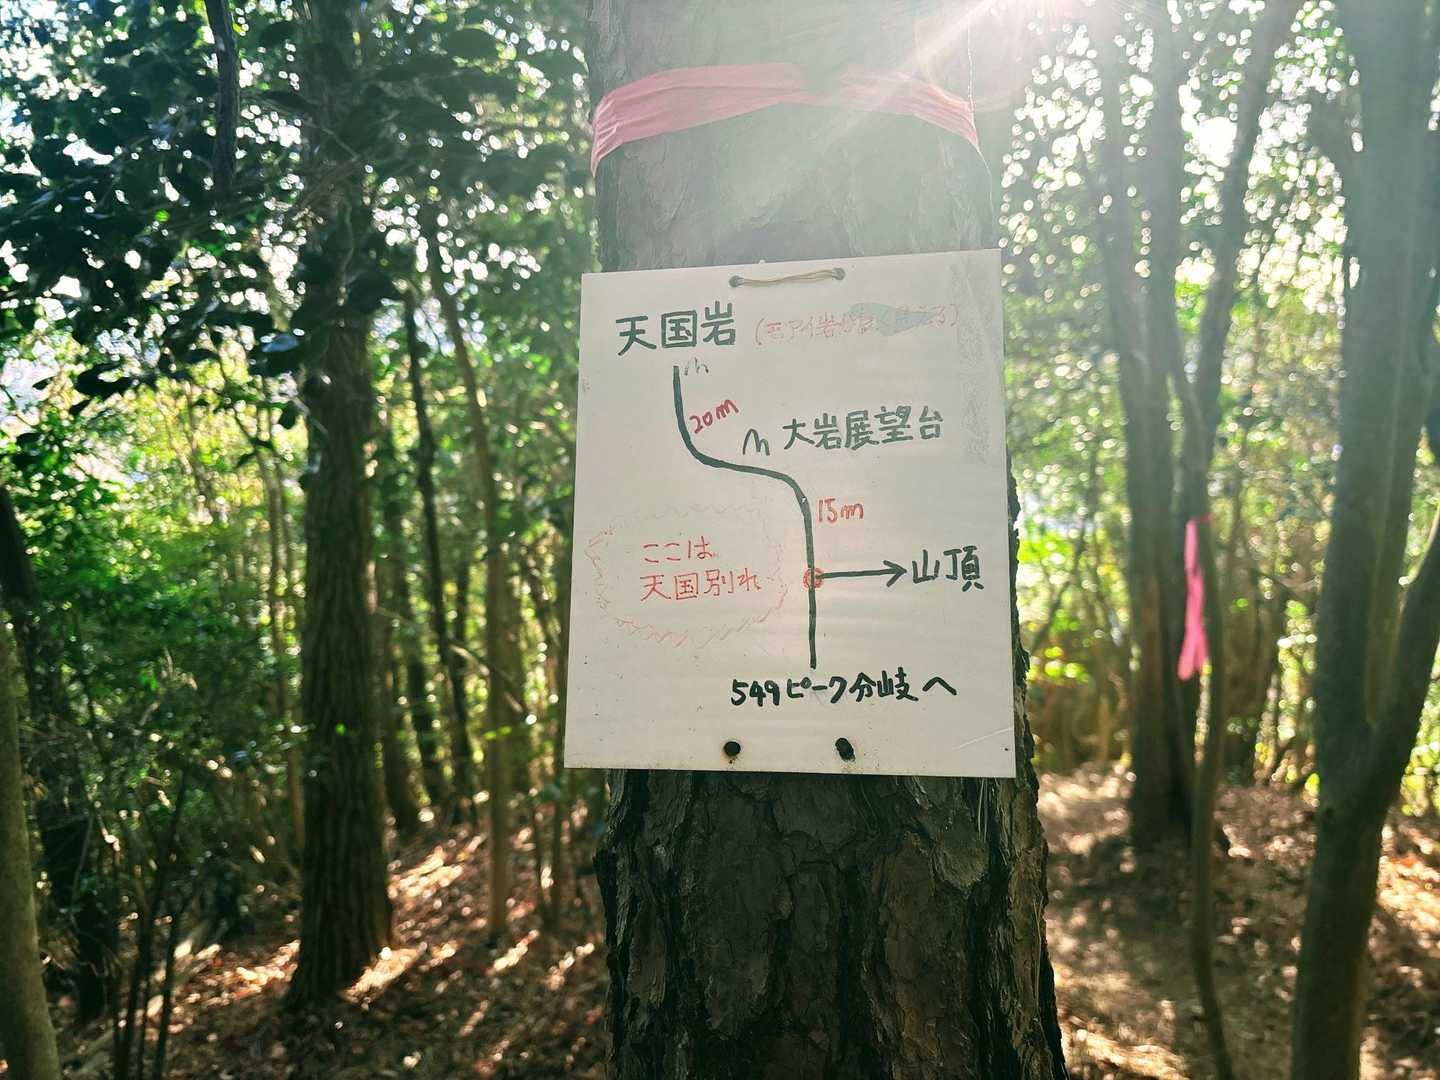 天国岩 (モアイ岩が良く見える)
20m
大岩展望台
15m
ここは
天国別れ
山頂
549ピーク分岐へ